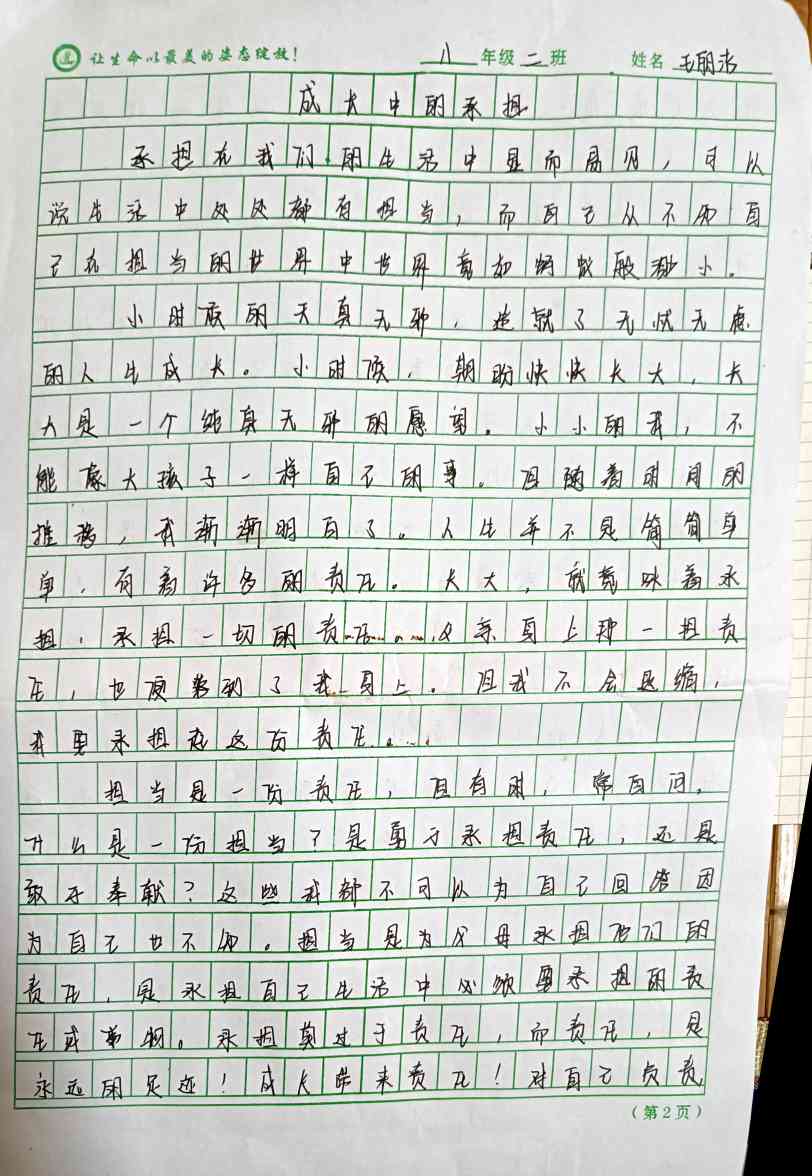 让生命以最美的姿态绽放！ 八年级二班 姓名
成长中的承担
承担在我们的生活中显而易见，可以
说生活中处处都有担当，而自己从不知自
己在担当的世界中世界竟如蚂蚁般渺小。
小时候的天真无邪，造就了无忧无虑
的人生成长。小时候，期盼快快长大，长
大是一个纯真无邪的愿望。小小的我，不
能像大孩子一样自己的事。但随着时间的
推移，我渐渐明白了。人生并不是简简单
单，有着许多的责任。长大，就意味着承
担，承担一切的责任……父亲身上那一担责
任，也顷到了我身上。但我不会退缩，
我要承担起这份责任……
担当是一份责任，但有时，常自问。
什么是一份担当？是勇于承担责任，还是
敢于奉献？这些我都不可以为自己回答因
为自己也不知。担当是为父母承担他们的
责任，是承担自己生活中必须要承担的责
任或事物。承担莫过于责任，而责任，是
永远的足迹！成长带来责任！对自己负责，
（第2页）